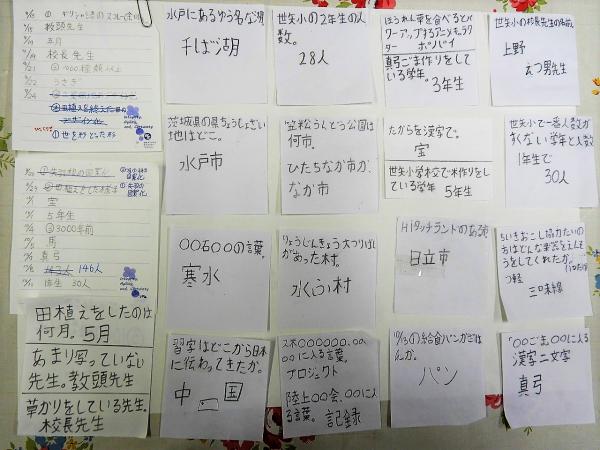 教頭先生
五月
校長先生
うさぎ
宝
5年生
③3000年前
馬
真弓
146人
1年生 30人
田植えをしたのは
何月。5月
あまり写っていない
先生。教頭先生
草かりをしている先生。
校長先生
水戸にあるゆう名な湖
千ば湖
茨城県の県ちょうしょざい
地はどこ。
水戸市
〇〇石〇〇の言葉。
寒水
習字はどこから日本
に伝わってきたか。
中国
世矢小の2年生の人
数。
28人
笠松うんどう公園は
何市。
ひたちなか市か、
なか市
りょうじんきょう大つりばし
があった村。
水ふ村
〇〇に入る言葉。
プロジェクト
陸上〇〇会、〇〇に入
る言葉。記録
ほうれん草を食べるとパ
ワーアップするアニメキャラク
ター ポパイ
真弓ごま作りをしてい
る学年。3年生
たからを漢字で。
宝
世矢小学校で米作りを
している学年 5年生
Hiタッチランドのある市
日立市
の給食パンかごは
んか。
パン
世矢小の校長先生の名前
上野
えつ男先生
世矢小で一番人数が
すくない学年と人数
1年生で
30人
ちいきおこし協力たいの
方はどんな楽器をえんそ
うをしてくれたか。
つ軽
三味線
〇〇ごま〇〇に入る
漢字二文字
真弓